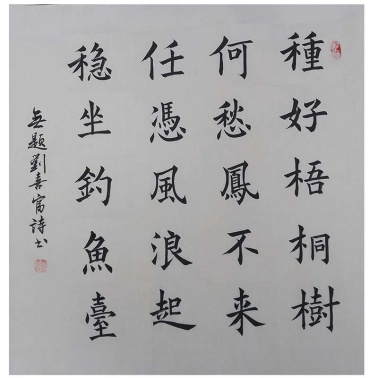 種好梧桐樹
何愁鳳不来
任憑風浪起
稳坐釣魚臺
無题劉喜富詩书